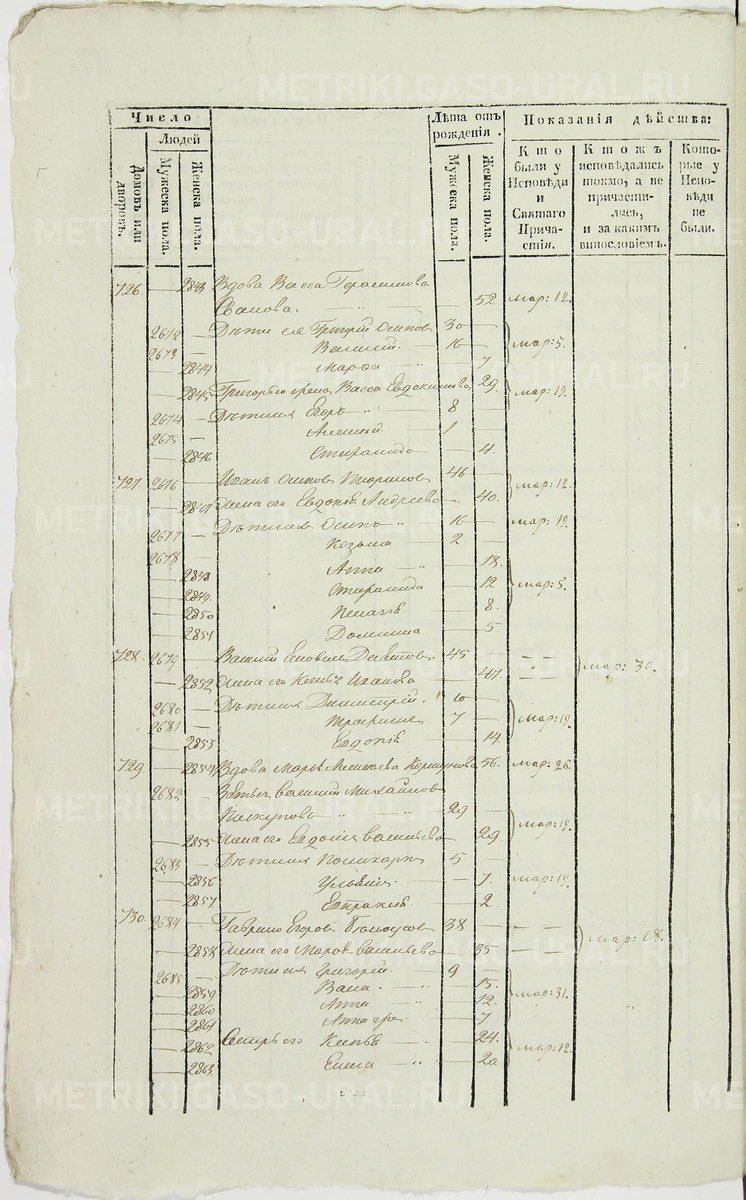 Число
Людей
Домовъ или дворовъ.
Мужеска пола.
Женска пола.
Лѣта отъ рожденія.
Мужеска пола.
Женска пола.
Показанія дѣйства:
Кто были у Исповѣди и Святаго Причастія.
Кто жъ исповѣдались токмо, а не причастились, и за какимъ винословіемъ.
Которые у Исповѣди не были.
726 — 2843 Вдова Васса Герасимова
— 52 мар: 12.
2672 — Дѣти ея Григорій Осиповъ 30 —
2673 — Василий 16 — мар: 5.
— 2844 Марфа — 7
— 2845 Григорью жена Васса Евдокимова 29. мар: 19.
2674 — Дѣти ихъ Егоръ 8 —
2675 — Алексѣй 1 —
— 2846 — 4.
727. 2676 — Иванъ Осиповъ 46 — мар: 12.
— 2847 Жена его Евдокія Андреева — 40.
2677 — Дѣти ихъ Осипъ 16 — мар: 19.
2678 — Козьма 2 —
— 2848 Анна — 18.
— 2849. — 12 мар: 5.
— 2850 Пелагея — 8.
— 2851 Домнина — 5
728. 2679 — Василий 45 — — — мар: 30.
— 2852 Жена его Ксенія Иванова — 41. — —
2680 — Дѣти ихъ Димитрий 10 —
2681 — Трофимъ 7 — мар: 19.
— 2853 Евдокія — 14.
729 — 2854 Вдова Марья Алексѣева 56. мар: 26.
2682 Зятья Василий Михайловъ
Пискуновъ 29 — мар: 19.
— 2855 Жена его Евдокія Васильева — 29.
2683 — Дѣти ихъ Поликарпъ 5 —
— 2856 Ульянія — 7. мар: 19.
— 2857 — 2.
730 2684 — Гаврило Егоровъ 38 — — — мар: 18.
— 2858 Жена его Марья Васильева — 35 — —
2685 — Дѣти ихъ Григорій 9
— 2859 — 15.
— 2860 Анна — 12. мар: 31.
— 2861 Анна — 7
— 2862 Сестры его Ксенія — 24. мар: 12.
— 2863 Елена — 20.
METRIKI.GASO-URAL.RU